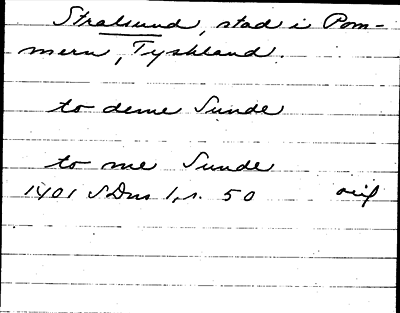 Stralsund, stad i Pom-
mern, Tyskland.
to deme Sunde
to me Sunde
1401 SDns 1, s. 50 orig